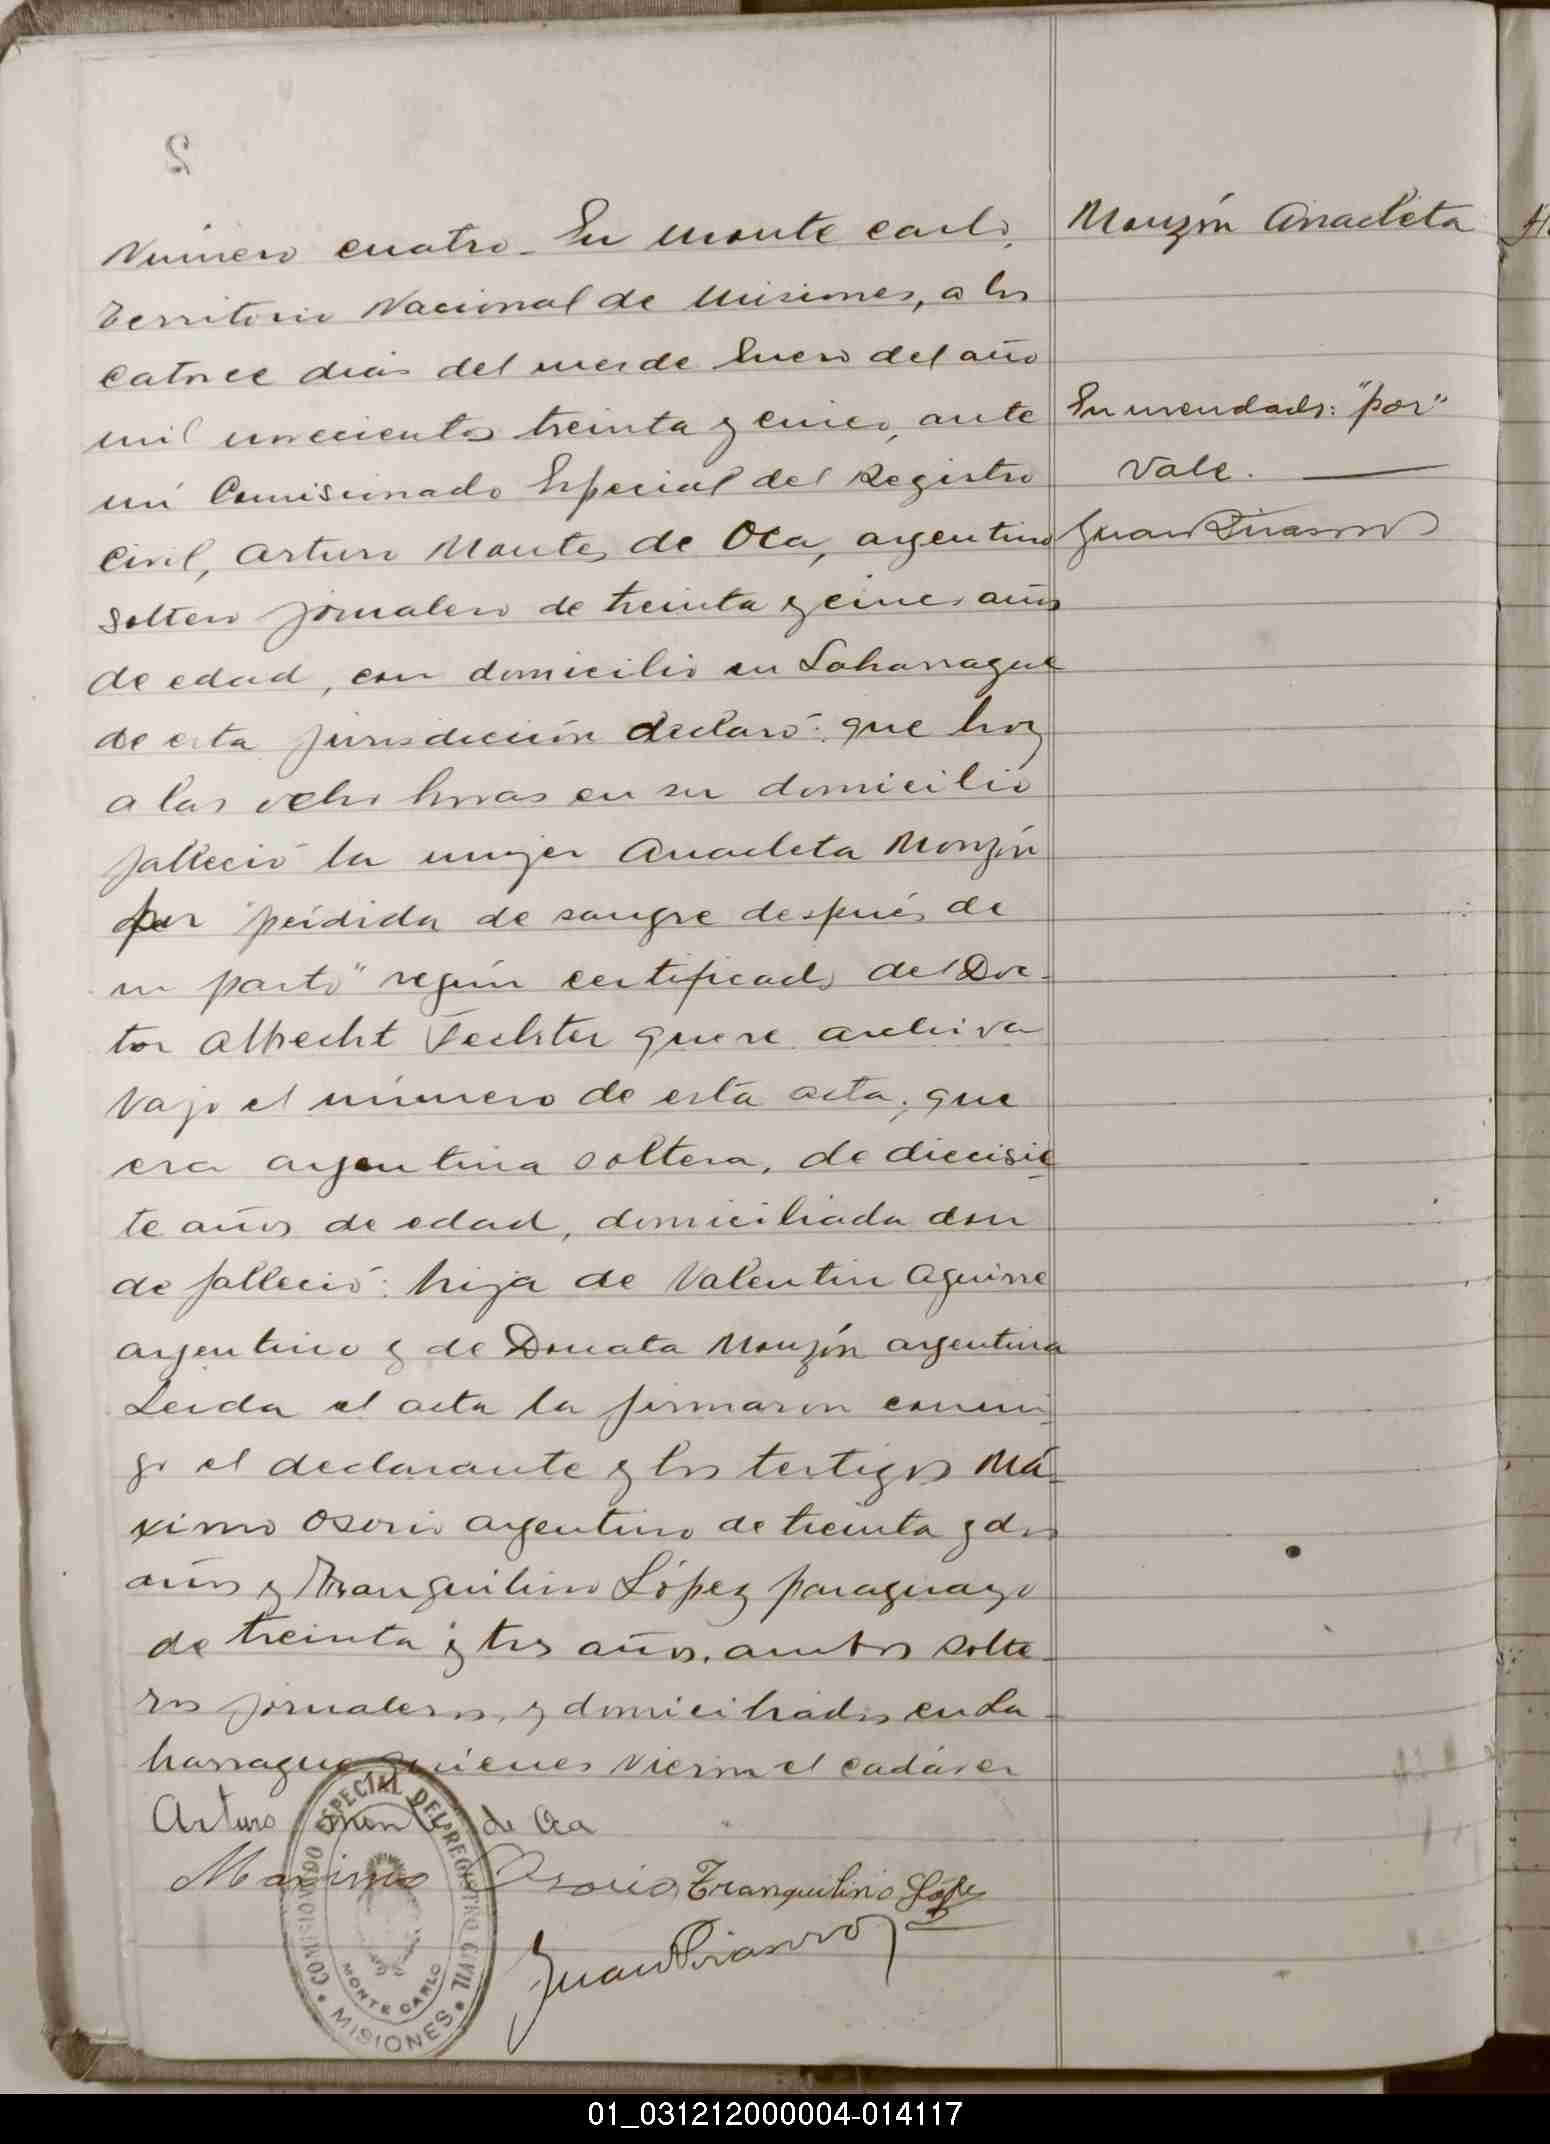 Número cuatro. En Monte carlo,
territorio Nacional de Misiones, a los
catorce dias del mes de Enero del año
mil novecientos treinta y cinco, ante
mi Comisionado Especial del Registro
civil, Arturo Montes de Oca, argentino
soltero jornalero de treinta y cinco años
de edad, con domicilio en Laharrague
de esta jurisdicción declaró: que hoy
a las ocho horas en su domicilio
falleció la mujer Anacleta Monzón
por "pérdida de sangre después de
un parto" según certificado del Doc-
tor Albrecht Fechter que se archiva
vajo el número de esta acta; que
era argentina soltera, de diecisie
te años de edad, domiciliada don
de falleció: hija de Valentin Aguirre
argentino y de Donata Monzón argentina
Leida el acta la firmaron conmi-
go el declarante y los testigos Má-
ximo Osorio argentino de treinta y dos
años y Tranquilino López paraguayo
de treinta y tres años. ambos solte-
ros jornaleros, y domiciliados en La-
harrague quienes vieron el cadáver
Arturo Monte de Oca
Maximo Osorio Tranquilino López
COMISIONADO ESPECIAL DEL REGISTRO CIVIL
MONTE CARLO
• MISIONES •
Monzón Anacleta
Enmendado: "por"
Vale.
2
01_031212000004-014117